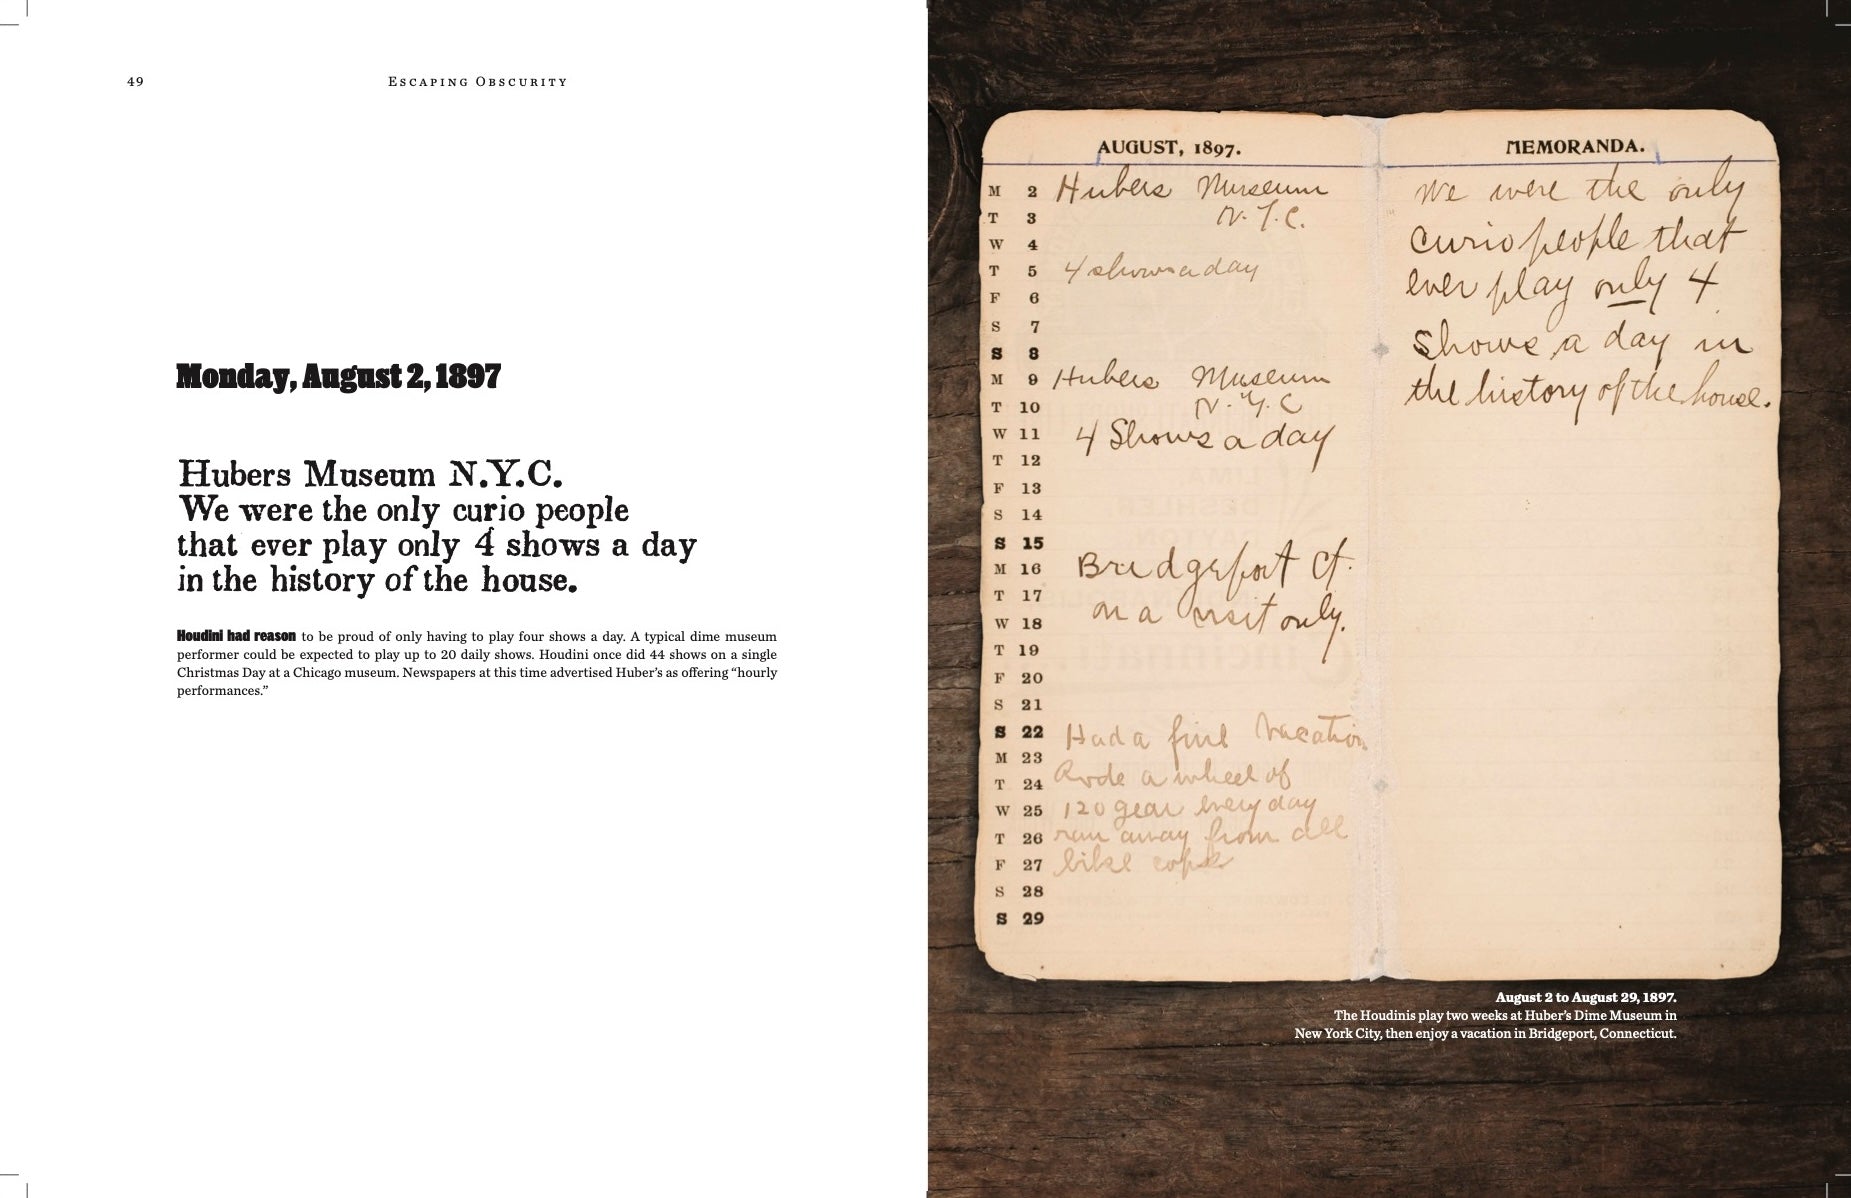 49
Escaping Obscurity
Monday, August 2, 1897
Hubers Museum N.Y.C.
We were the only curio people
that ever play only 4 shows a day
in the history of the house.
Houdini had reason to be proud of only having to play four shows a day. A typical dime museum
performer could be expected to play up to 20 daily shows. Houdini once did 44 shows on a single
Christmas Day at a Chicago museum. Newspapers at this time advertised Huber’s as offering “hourly
performances.”
AUGUST, 1897.
M 2 Hubers Museum
T 3 N.Y.C.
W 4
T 5 4 shows a day
F 6
S 7
S 8
M 9 Hubers Museum
T 10 N.Y.C
W 11 4 Shows a day
T 12
F 13
S 14
S 15
M 16 Bridgeport Ct.
T 17 on a visit only.
W 18
T 19
F 20
S 21
S 22 Had a fine Vacation
M 23
T 24 Rode a wheel of
W 25 120 gear every day
T 26 ran away from all
F 27 bike cops
S 28
S 29
MEMORANDA.
We were the only
curio people that
ever play only 4
shows a day in
the history of the house.
August 2 to August 29, 1897.
The Houdinis play two weeks at Huber’s Dime Museum in
New York City, then enjoy a vacation in Bridgeport, Connecticut.